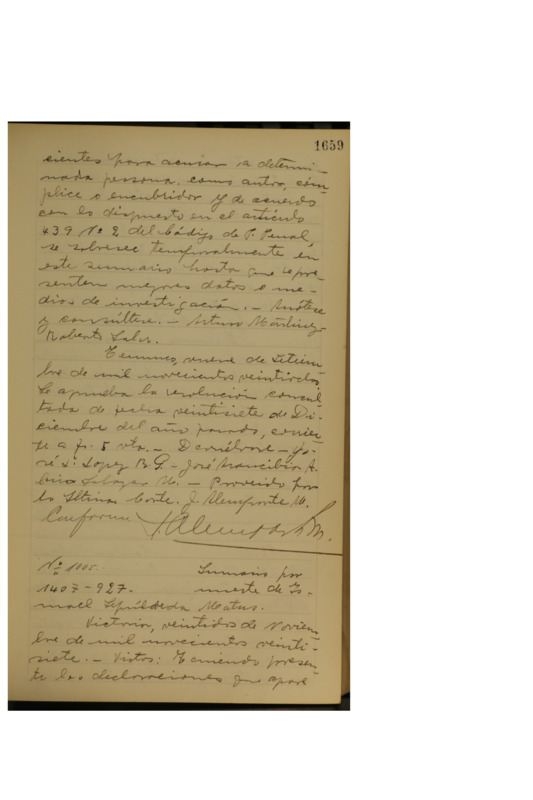 1659
cientes para acusar a determi-
nada persona, como autor, cóm-
plice o encubridor y de acuerdo
con lo dispuesto en el artículo
439 Nº 2 del Código de P. Penal,
se sobresee temporalmente en
este sumario hasta que se pre-
senten mejores datos o me-
dios de investigación. - Anótese
y consúltese. - Arturo Martínez
Roberto
Temuco, nueve de Setiem-
bre de mil novecientos veintiocho
Se aprueba la resolución consul
tada de fecha veintisiete de Di-
ciembre del año pasado, corrien
te a fs. 5 vta. - Devuélvase - Jo-
sé L. Lopez B. G. - José Arancibia A.
Salazar U. - Proveido por
la Iltma Corte. J. M.
Conforme
Nº 1005.
Sumario por
1407-927.
muerte de Is-
mael Sepúlveda Matus.
Victoria, veintidos de Noviem
bre de mil novecientos veinti-
siete. - Vistos: Teniendo presen-
te las declaraciones que apare